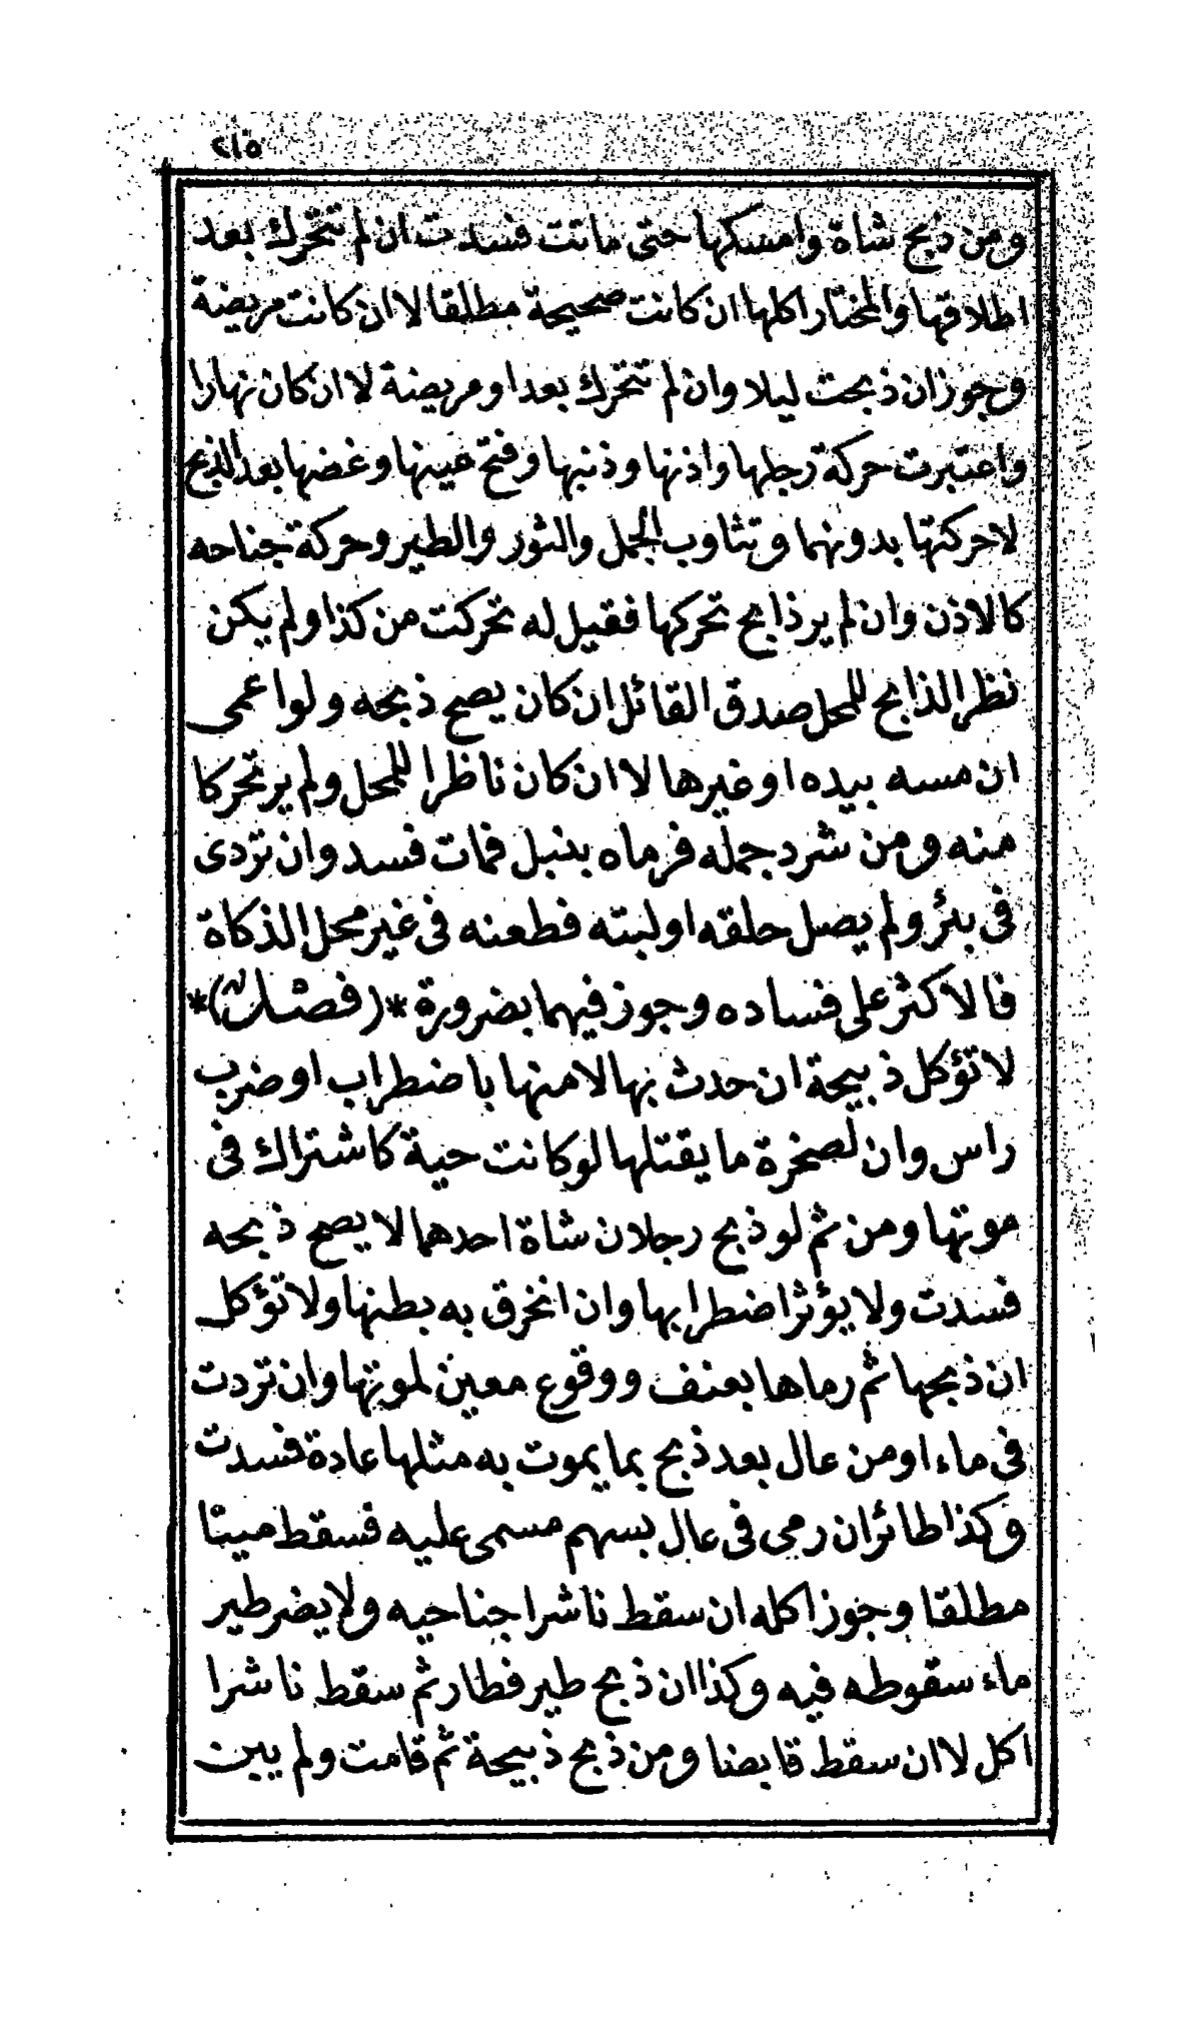 ٢١٥
ومن ذبح شاة وامسكها حتى ماتت فسدت ان لم تتحرك بعد
اطلاقها والمختار اكلها ان كانت صحيحة مطلقا لا ان كانت مريضة
وجوز ان ذبحت ليلا وان لم تتحرك بعد او مريضة لا ان كان نهارا
واعتبرت حركة رجلها واذنها وذنبها وفتح عينها وغضها بعد الذبح
لا حركتها بدونهما وتثاوب الجمل والثور والطير وحركة جناحه
كالاذن وان لم ير ذابح تحركها فقيل له تحركت من كذا ولم يكن
نظر الذابح للمحل صدق القائل ان كان يصح ذبحه ولو اعمى
ان مسه بيده او غيرها لا ان كان ناظرا للمحل ولم ير تحركا
منه ومن شرد جمله فرماه بنبل فمات فسد وان تردى
فى بئر ولم يصل حلقه او لبته فطعنه فى غير محل الذكاة
فالاكثر على فساده وجوز فيهما بضرورة *(فصل)*
لا تؤكل ذبيحة ان حدث بها لا منها باضطراب او ضرب
راس وان لصخرة ما يقتلها لو كانت حية كاشتراك فى
موتها ومن ثم لو ذبح رجلان شاة احدهما لا يصح ذبحه
فسدت ولا يؤثر اضطرابها وان انخرق به بطنها ولا تؤكل
ان ذبحها ثم رماها بعنف ووقوع معين لموتها وان تردت
فى ماء او من عال بعد ذبح بما يموت به مثلها عادة فسدت
وكذا طائر ان رمى فى عال بسهم مسمى عليه فسقط ميتا
مطلقا وجوز اكله ان سقط ناشرا جناحيه ولا يضر طير
ماء سقوطه فيه وكذا ان ذبح طير فطار ثم سقط ناشرا
اكل لا ان سقط قابضا ومن ذبح ذبيحة ثم قامت ولم يبن